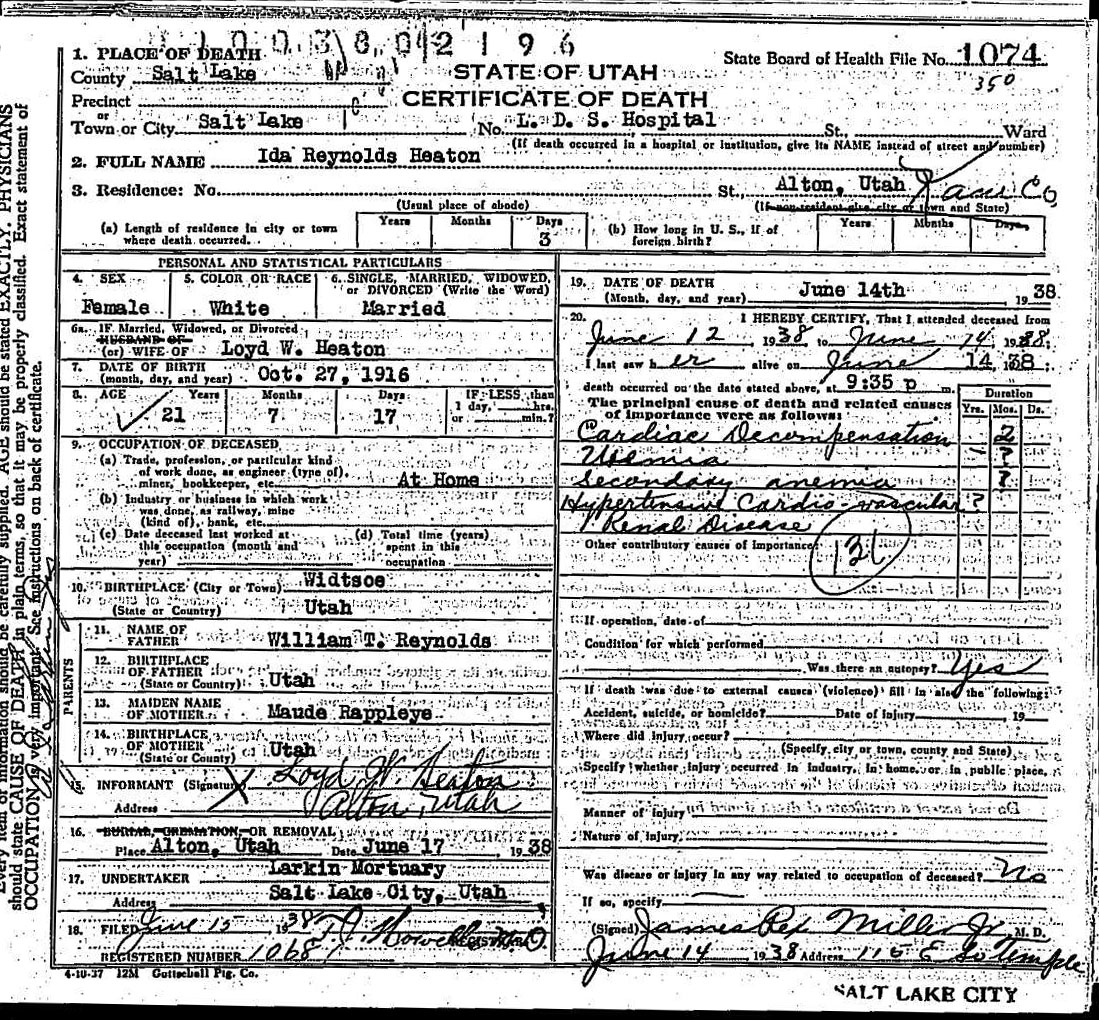 1003802196
1. PLACE OF DEATH
County Salt Lake
STATE OF UTAH
State Board of Health File No. 1074
350
Precinct
CERTIFICATE OF DEATH
or
Town or City Salt Lake No. L. D. S. Hospital St., Ward
(If death occurred in a hospital or institution, give its NAME instead of street and number)
2. FULL NAME Ida Reynolds Heaton
3. Residence: No. St., Alton, Utah Co
(Usual place of abode) (If non-resident give city or town and State)
(a) Length of residence in city or town where death occurred. Years Months Days 3
(b) How long in U. S., if of foreign birth? Years Months Days
PERSONAL AND STATISTICAL PARTICULARS
4. SEX Female
5. COLOR OR RACE White
6. SINGLE, MARRIED, WIDOWED, or DIVORCED (Write the Word) Married
6a. IF Married, Widowed, or Divorced
HUSBAND OF
(or) WIFE OF Loyd W. Heaton
7. DATE OF BIRTH
(month, day, and year) Oct. 27, 1916
8. AGE Years 21 Months 7 Days 17 IF LESS than 1 day, hrs. or min.?
9. OCCUPATION OF DECEASED
(a) Trade, profession, or particular kind
of work done, as engineer (type of),
miner, bookkeeper, etc. At Home
(b) Industry or business in which work
was done, as railway, mine
(kind of), bank, etc.
(c) Date deceased last worked at this occupation (month and year)
(d) Total time (years) spent in this occupation
10. BIRTHPLACE (City or Town) Widtsoe
(State or Country) Utah
PARENTS
11. NAME OF FATHER William T. Reynolds
12. BIRTHPLACE OF FATHER
(State or Country) Utah
13. MAIDEN NAME OF MOTHER Maude Rappleye
14. BIRTHPLACE OF MOTHER
(State or Country) Utah
15. INFORMANT (Signature) X Loyd W. Heaton
Address Alton, Utah
16. BURIAL, CREMATION, OR REMOVAL
Place Alton, Utah Date June 17 1938
17. UNDERTAKER Larkin Mortuary
Address Salt Lake City, Utah
18. FILED June 15 1938
REGISTERED NUMBER 1068
4-10-37 12M Gottschall Ptg. Co.
19. DATE OF DEATH
(Month, day, and year) June 14th 1938
20. I HEREBY CERTIFY, That I attended deceased from
June 12, 1938 to June 14 1938;
I last saw her alive on June 14 1938;
death occurred on the date stated above, at 9:35 p m.
The principal cause of death and related causes of importance were as follows:
Duration
Yrs. Mos. Ds.
Cardiac Decompensation 2
Uremia ?
Secondary anemia ?
Hypertensive Cardio-vascular ?
Renal Disease
Other contributory causes of importance
131
If operation, date of
Condition for which performed
Was there an autopsy? Yes
If death was due to external causes (violence) fill in also the following:
Accident, suicide, or homicide? Date of injury 19
Where did injury occur?
(Specify city or town, county and State)
Specify whether injury occurred in industry, in home, or in public place,
Manner of injury
Nature of injury
Was disease or injury in any way related to occupation of deceased? No
If so, specify
(Signed) James Rex Miller Jr M. D.
June 14 1938 Address 115 E So Temple
SALT LAKE CITY
Every item of information should be carefully supplied. AGE should be stated EXACTLY. PHYSICIANS
should state CAUSE OF DEATH in plain terms, so that it may be properly classified. Exact statement of
OCCUPATION is very important. See instructions on back of certificate.